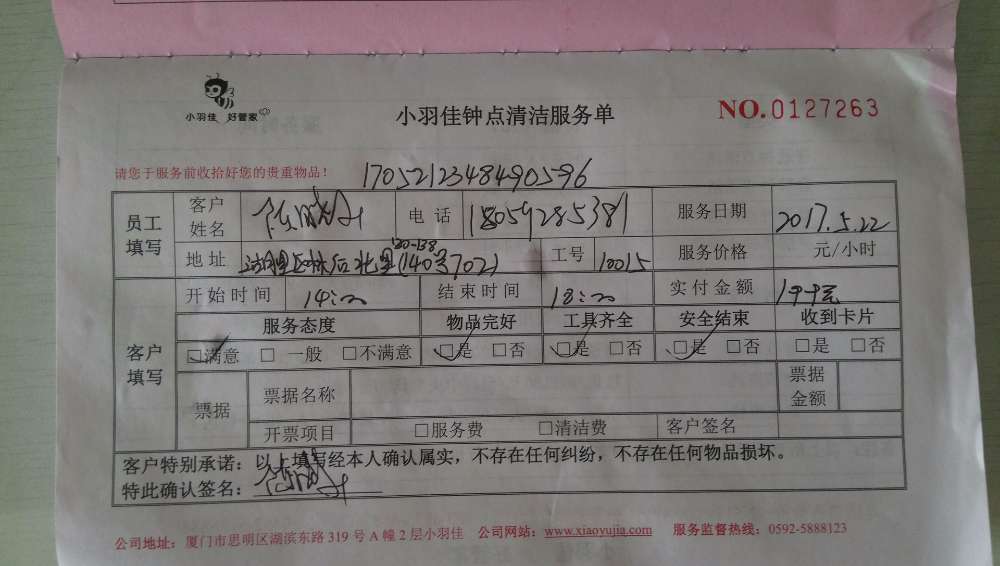 小羽佳 好管家
小羽佳钟点清洁服务单
NO.0127263
请您于服务前收拾好您的贵重物品！
1705212348490596
员工填写 客户姓名 电话 18059285381 服务日期 2017.5.22
地址 林后北里(140号702) 120-138 工号 10015 服务价格 元/小时
客户填写 开始时间 14:00 结束时间 18:00 实付金额
服务态度 物品完好 工具齐全 安全结束 收到卡片
□满意 □一般 □不满意 □是 □否 □是 □否 □是 □否 □是 □否
票据 票据名称 票据金额
开票项目 □服务费 □清洁费 客户签名
客户特别承诺：以上填写经本人确认属实，不存在任何纠纷，不存在任何物品损坏。
特此确认签名：
公司地址：厦门市思明区湖滨东路 319 号 A 幢 2 层小羽佳 公司网站：www.xiaoyujia.com 服务监督热线：0592-5888123